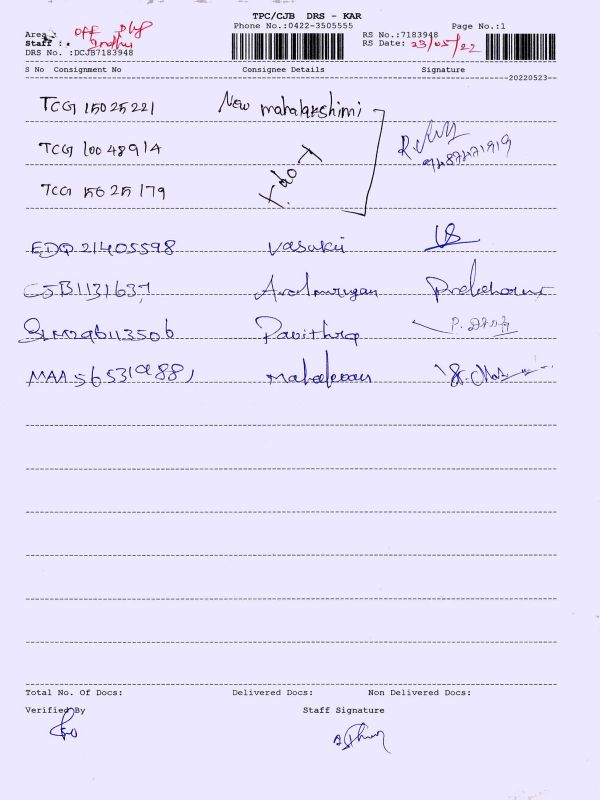 TPC/CJB DRS - KAR
Phone No.:0422-3505555 Page No.:1
Area : Off
Staff : Indhu RS No.:7183948
DRS No. :DCJB7183948 RS Date: 23/05/22
S No Consignment No Consignee Details Signature
20220523
TCG 15025221 New mahalakshimi
TCG 10048914
9487471919
TCG 15625179
EDQ 21405598 Vasuki
CJB1131637 Arulmurugan
SLM296113506 Pavithra
MAA 565319881 Mahadevan
Total No. Of Docs: Delivered Docs: Non Delivered Docs:
Verified By Staff Signature